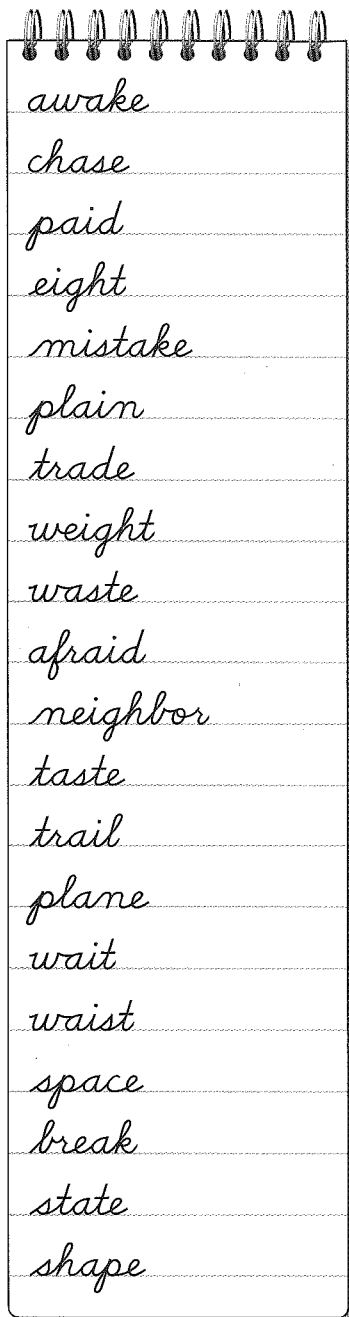 awake
chase
paid
eight
mistake
plain
trade
weight
waste
afraid
neighbor
taste
trail
plane
wait
waist
space
break
state
shape